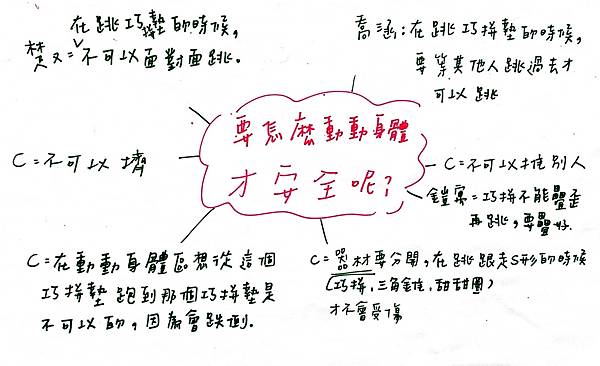 在跳巧拼墊的時候,
楚又=不可以面對面跳.
喬涵:在跳巧拼墊的時候,
要等其他人跳過去才
可以跳
要怎麼動動身體
才安全呢?
C=不可以擠
C=不可以推別人
鎧寓=巧拼不能疊歪
再跳,要疊好.
C=在動動身體區想從這個
巧拼墊跑到那個巧拼墊是
不可以的,因為會跌倒.
C=器材要分開,在跳跟走S形的時候
(巧拼,三角錐,甜甜圈)
才不會受傷